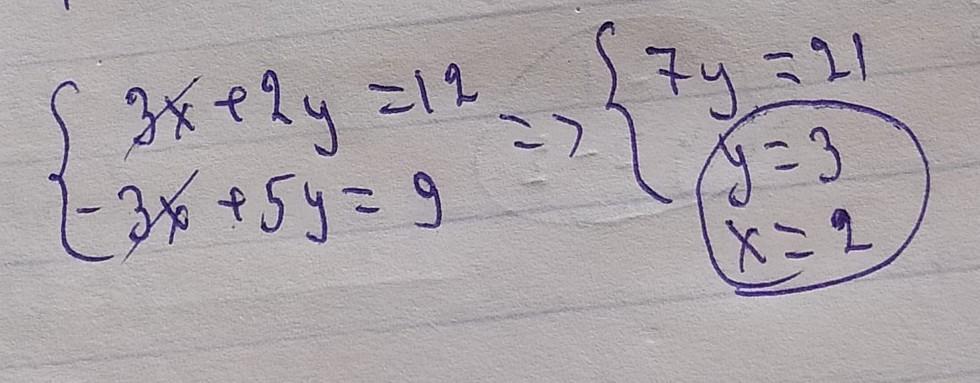 3x + 2y = 12
-3x + 5y = 9
=>
7y = 21
y = 3
x = 2